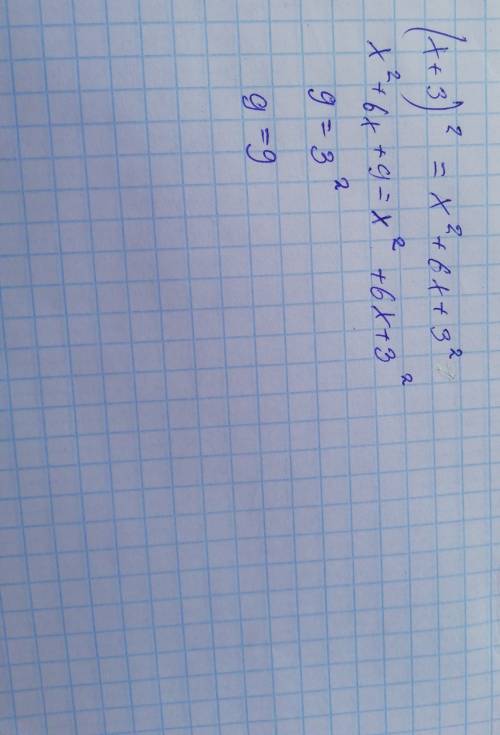 (x+3)² = x²+6x+3²
x²+6x+9=x² +6x+3²
9=3²
9=9